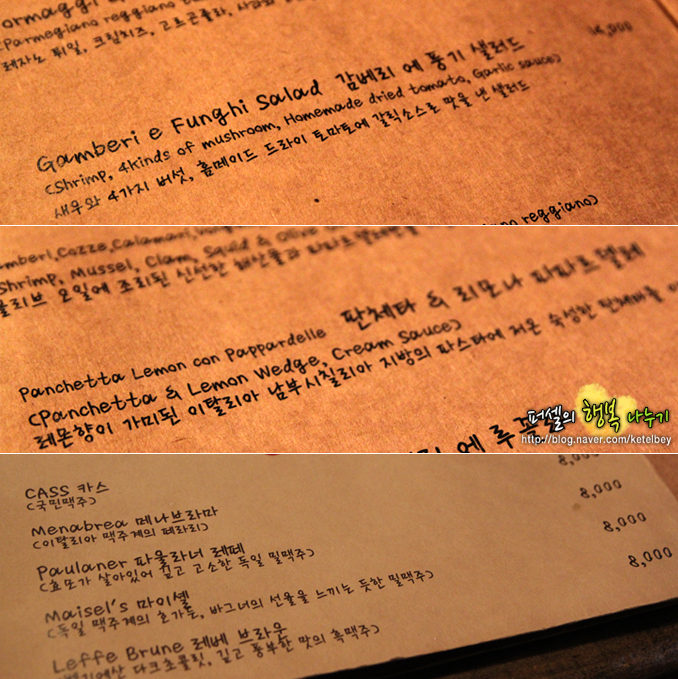 ormaggi
(Parmegiano reggiano
레자노 튀일, 크림치즈, 고르곤졸라, 사과와
Gamberi e Funghi Salad 감베리 에 풍기 샐러드
(Shrimp, 4kinds of mushroom, Homemade dried tomato, Garlic sauce)
새우와 4가지 버섯, 홈메이드 드라이 토마토에 갈릭소스로 맛을 낸 샐러드
reggiano)
amberi,Cozze,Calamari,
Shrimp, Mussel, Clam, Squid & Olive
올리브 오일에 조리된 신선한 해산물과
Panchetta Lemon con Pappardelle 판체타 & 리모나 파파르델레
(Panchetta & Lemon Wedge, Cream Sauce)
레몬향이 가미된 이탈리아 남부시칠리아 지방의 파스타에 저온 숙성한 판체타를
에 루꼴
퍼셀의 행복 나누기
http://blog.naver.com/ketelbey
CASS 카스
(국민맥주)
8,000
Menabrea 메나브라마
(이탈리아 맥주계의 페라리)
8,000
Paulaner 파울라너 레페
(효모가 살아있어 깊고 고소한 독일 밀맥주)
8,000
Maisel's 마이셀
(독일 맥주계의 혼가든, 바그너의 선율을 느끼는 듯한 밀맥주)
8,000
Leffe Brune 레베 브라운
벨기에산 다크초콜릿, 깊고 풍부한 맛의 흑맥주)